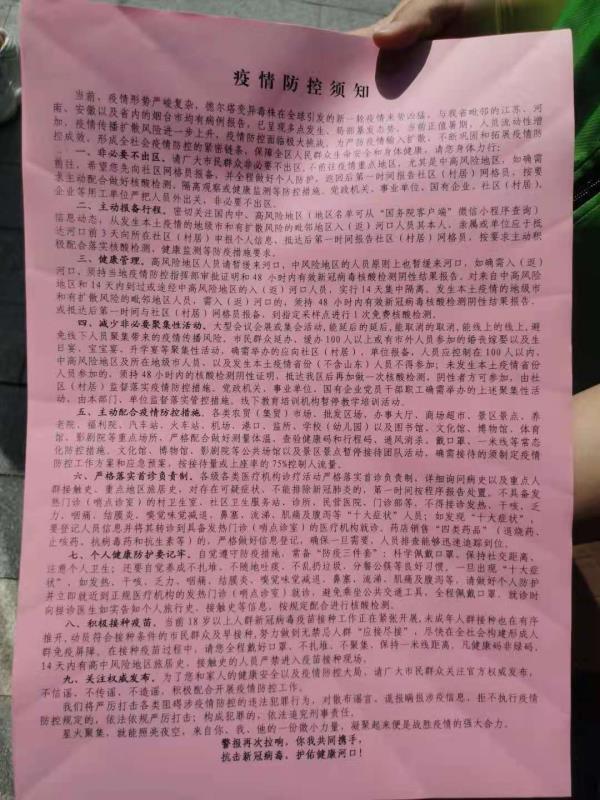 疫情防控须知
当前，疫情形势严峻复杂，德尔塔变异毒株在全球引发的新一轮疫情来势凶猛，与我省毗邻的江苏、河
南、安徽以及省内的烟台市均有病例报告，已呈现多点发生、局部暴发态势。当前正值暑期，人员流动性增
加，疫情传播扩散风险进一步上升，疫情防控面临极大挑战。为严防疫情输入扩散，不断巩固和拓展疫情防
控成效，形成全社会疫情防控的紧密链条，保障全区人民群众生命安全和身体健康，请您身体力行：
一、非必要不出区。请广大市民群众非必要不出区，不前往疫情重点地区，尤其是中高风险地区，如确需
前往，希望您先向社区网格员报备，并全程做好个人防护。返回后第一时间报告社区（村居）网格员，按要
求主动配合做好核酸检测、隔离观察或健康监测等防控措施。党政机关、事业单位、国有企业、社区（村居）、
企业等用工单位严把人员外出关，非必要不出区。
二、主动报备行程。密切关注国内中、高风险地区（地区名单可从“国务院客户端”微信小程序查询）
信息动态，从发生本土疫情的地级市和有扩散风险的毗邻地区入（返）河口人员其本人、亲属或单位应于抵
达河口前3天向所在社区（村居）申报个人信息，抵达后第一时间报告社区（村居）网格员，按要求主动积
极配合落实核酸检测、健康监测等防疫措施要求。
三、健康管理。高风险地区人员请暂缓来河口，中风险地区的人员原则上也暂缓来河口，如确需入（返）
河口，须持当地疫情防控指挥部审批证明和48小时内有效新冠病毒核酸检测阴性结果报告。对来自中高风险
地区和14天内到过或途经中高风险地区的入（返）河口人员，实行14天集中隔离。发生本土疫情的地级市
和有扩散风险的毗邻地区人员，需入（返）河口的，须持48小时内有效新冠病毒核酸检测阴性结果报告，
或抵达后第一时间与社区（村居）网格员报备，到指定采样点进行1次免费核酸检测。
四、减少非必要聚集性活动。大型会议会展或集会活动，能延后的延后，能取消的取消，能线上的线上，避
免线下人员聚集带来的疫情传播风险。市民群众延办、缓办100人以上或有市外人员参加的婚丧嫁娶以及生
日宴、宝宝宴、升学宴等聚集性活动，确需举办的应向社区（村居）、单位报备，人员应控制在100人以内，
中高风险地区及所在地级市人员、以及发生本土疫情省份（不含山东）人员不得参加；未发生本土疫情省份
人员参加的，须持48小时核酸检测阴性证明，抵达我区后再做一次核酸检测，阴性者方可参加，由社
区（村居）监督落实疫情防控措施。党政机关、事业单位、国有企业党员干部职工确需举办的上述聚集性活
动，由本部门、单位监督落实管控措施。线下教育培训机构暂停教学培训活动。
五、主动配合疫情防控措施。各类农贸（集贸）市场、批发区场、办事大厅、商场超市、景区景点、养
老院、福利院、汽车站、火车站、机场、港口、监所、学校（幼儿园）以及图书馆、文化馆、博物馆、体育
馆、影剧院等重点场所，严格配合做好测量体温、查验健康码和行程码、通风消杀、戴口罩、一米线等常态
化防控措施。文化馆、博物馆、影剧院等公共场馆以及景区景点暂停接待团队活动，确需接待的须制定疫情
防控工作方案和应急预案，按接待量或上座率的75%控制人流量。
六、严格落实首诊负责制。各级各类医疗机构诊疗活动严格落实首诊负责制，详细询问病史以及重点人
群接触史、重点地区旅居史，对存在可疑症状、不能排除新冠肺炎的，第一时间按程序报告处置。不具备发
热门诊（哨点诊室）的村卫生室、社区卫生服务站、诊所、民营医院、门诊部等，不得接诊发热、干咳、乏
力、咽痛、结膜炎、嗅觉味觉减退、鼻塞、流涕、肌痛及腹泻等“十大症状”人员；如发现“十大症状”，
要登记人员信息并将其转诊到具备发热门诊（哨点诊室）的医疗机构就诊。药店销售“四类药品”（退烧药、
止咳药、抗病毒药和抗生素等）的，严格做好信息登记，确保一旦需要，人员排查能够迅速追踪到位。
七、个人健康防护要记牢。自觉遵守防疫措施，常备“防疫三件套”：科学佩戴口罩，保持社交距离，
注意个人卫生；还要自觉养成不扎堆、不随地吐痰、不乱扔垃圾、分餐公筷等良好习惯。一旦出现“十大症
状”，如发热、干咳、乏力、咽痛、结膜炎、嗅觉味觉减退、鼻塞、流涕、肌痛及腹泻等，请做好个人防护
并立即就近到正规医疗机构的发热门诊（哨点诊室）就诊，避免乘坐公共交通工具，全程佩戴口罩。就诊时
向接诊医生如实告知个人旅行史、接触史等信息，按规定配合进行核酸检测。
八、积极接种疫苗。当前18岁以上人群新冠病毒疫苗接种工作正在紧张开展，未成年人群接种也在有序
推开，动员符合接种条件的市民群众及早接种，努力做到无禁忌人群“应接尽接”，尽快在全社会构建形成人
群免疫屏障。在接种疫苗过程中，请您全程戴好口罩，不扎堆、不聚集，保持一米线距离。凡健康码非绿码、
14天内有高中风险地区旅居史，接触史的人员严禁进入疫苗接种现场。
九、关注权威发布。为了您和家人的健康安全以及疫情防控大局，请广大市民群众关注官方权威发布，
不信谣、不传谣、不造谣，积极配合开展疫情防控工作。
我们将严厉打击各类阻碍涉疫情防控的违法犯罪行为，对散布谣言、谎报瞒报涉疫信息，拒不执行疫情
防控规定的，依法依规严厉打击；构成犯罪的，依法追究刑事责任。
星火聚集，就能照亮夜空，来自你、我、他的一份微小力量，凝聚起来便是战胜疫情的强大合力。
警报再次拉响，你我共同携手，
抗击新冠病毒，护佑健康河口！